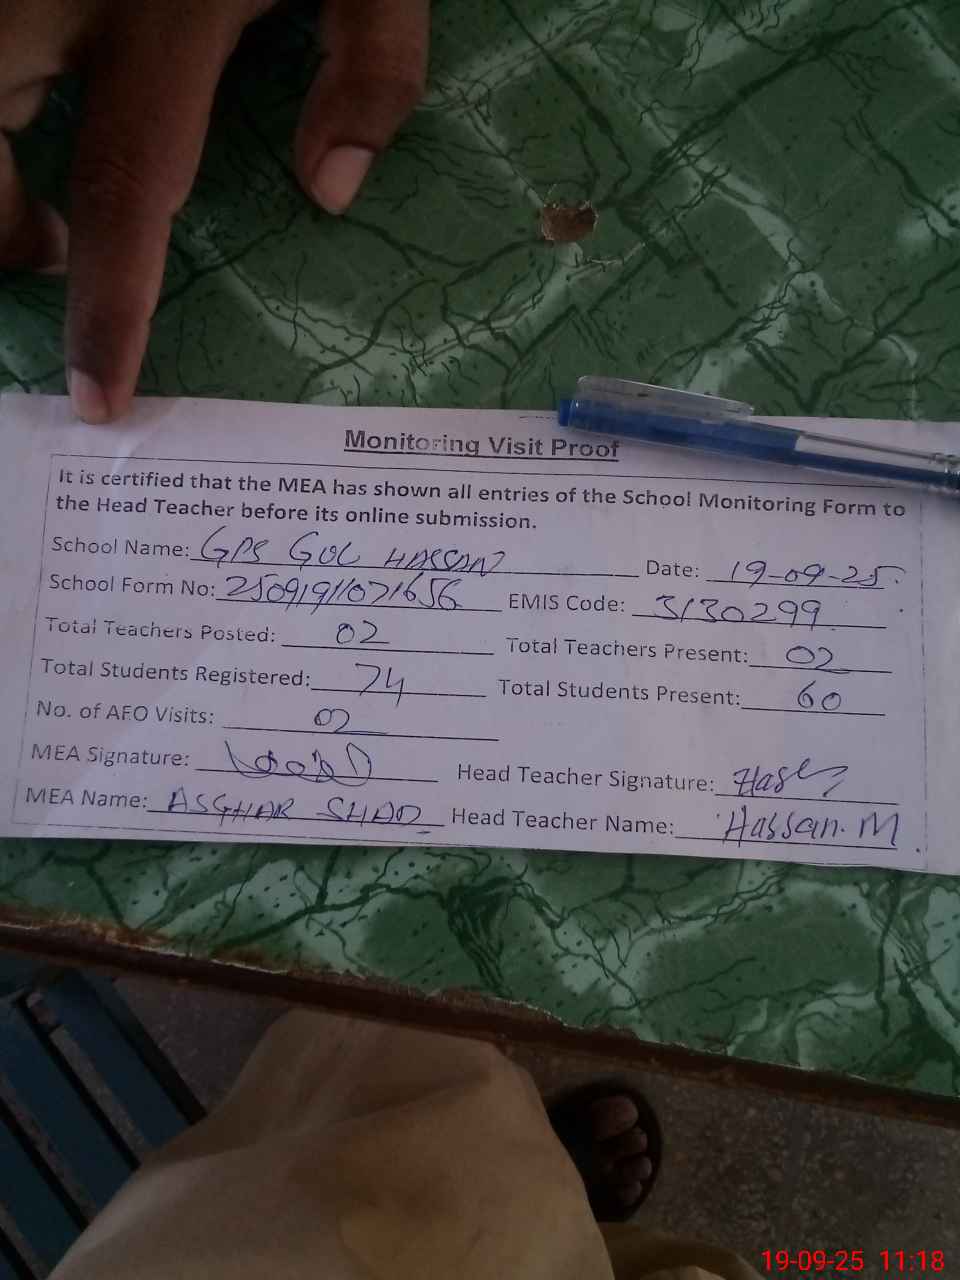 Monitoring Visit Proof
It is certified that the MEA has shown all entries of the School Monitoring Form to
the Head Teacher before its online submission.
School Name: GPS GUL HASSAN Date: 19-09-25.
School Form No: 2509191107 1656 EMIS Code: 3130299
Total Teachers Posted: 02 Total Teachers Present: 02
Total Students Registered: 74 Total Students Present: 60
No. of AFO Visits: 02
MEA Signature: Head Teacher Signature:
MEA Name: ASGHAR SHAD Head Teacher Name: Hassan. M
19-09-25 11:18